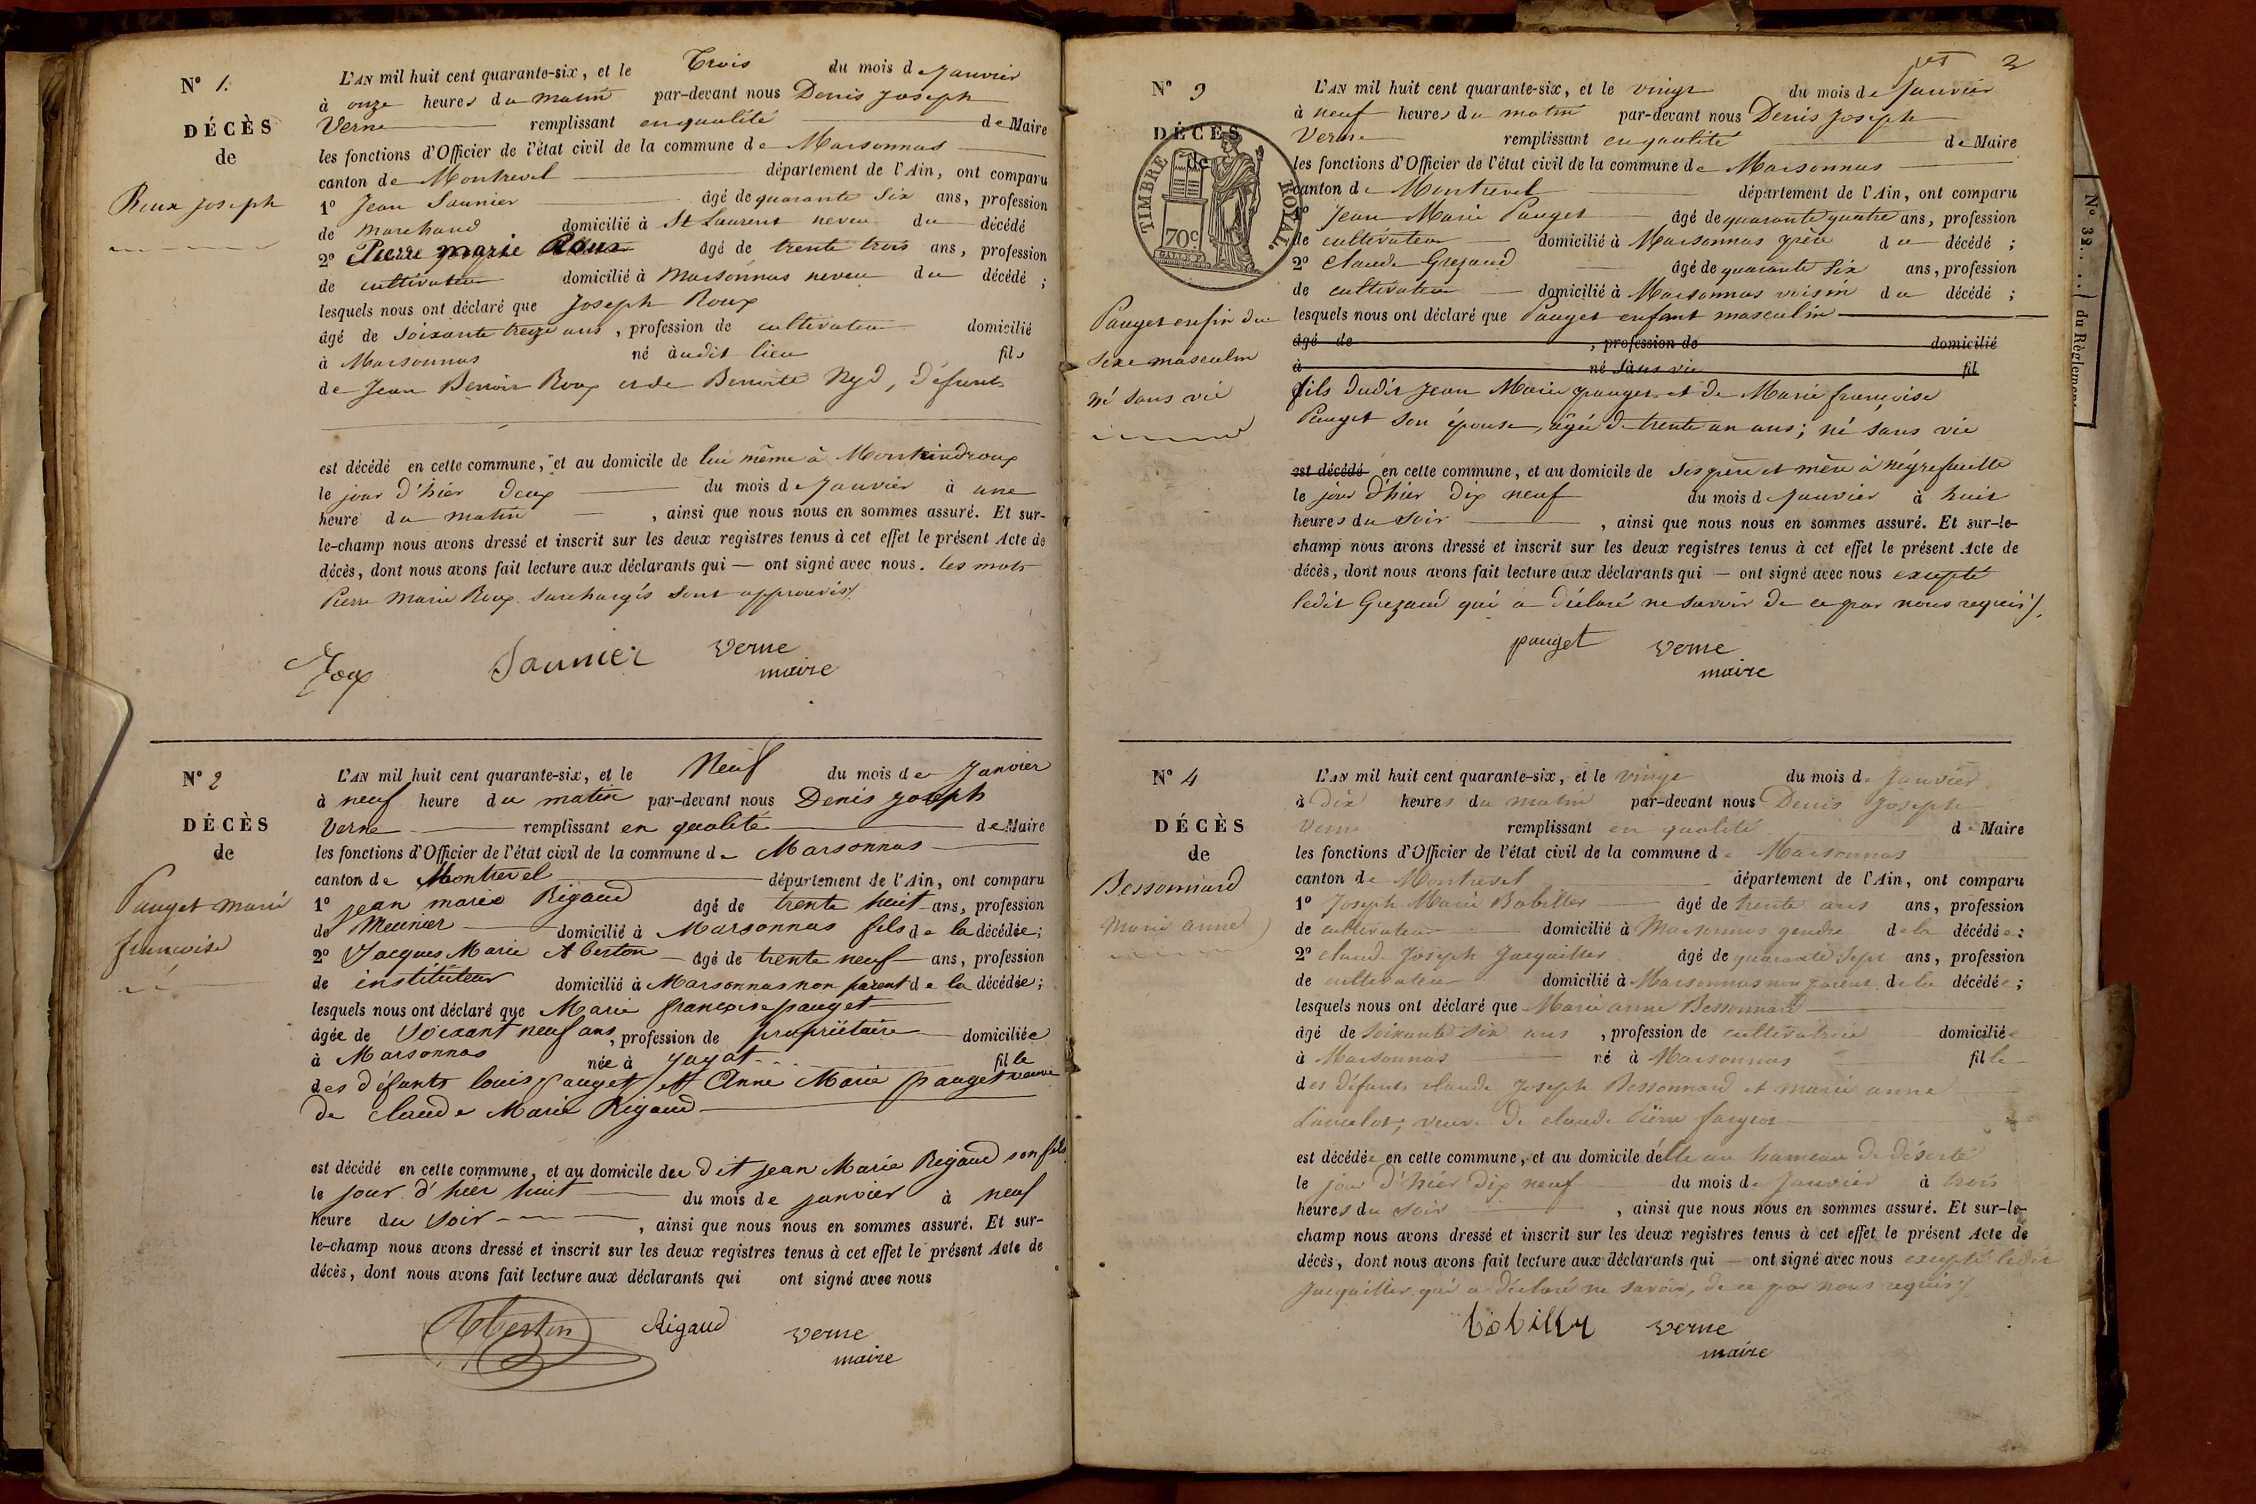 N° 1.
DÉCÈS
de
Roux Joseph
L'AN mil huit cent quarante-six, et le Trois du mois de Janvier
à onze heures du matin par-devant nous Denis Joseph
Verne remplissant en qualité de Maire
les fonctions d'Officier de l'état civil de la commune de Marsonnas
canton de Montrevel département de l'Ain, ont comparu
1° Jean Saunier âgé de quarante six ans, profession
de marchand domicilié à St Laurent neveu du décédé
2° Pierre marie Roux âgé de trente trois ans, profession
de cultivateur domicilié à Marsonnas neveu du décédé ;
lesquels nous ont déclaré que Joseph Roux
âgé de soixante treize ans, profession de cultivateur domicilié
à Marsonnas né audit lieu fils
de Jean Benoit Roux et de Benoite Nyd, défunts
est décédé en cette commune, et au domicile de lui même à
le jour d'hier deux du mois de Janvier à une
heure du matin, ainsi que nous nous en sommes assuré. Et sur-
le-champ nous avons dressé et inscrit sur les deux registres tenus à cet effet le présent Acte de
décès, dont nous avons fait lecture aux déclarants qui — ont signé avec nous. les mots
Pierre Marie Roux surchargés sont approuvés/.
Roux Saunier Verne
maire
N° 2
DÉCÈS
de
Pauget marie
françoise
L'AN mil huit cent quarante-six, et le Neuf du mois de Janvier
à neuf heure du matin par-devant nous Denis Joseph
Verne remplissant en qualité de Maire
les fonctions d'Officier de l'état civil de la commune de Marsonnas
canton de Montrevel département de l'Ain, ont comparu
1° Jean marie Rigaud âgé de trente huit ans, profession
de Meunier domicilié à Marsonnas fils de la décédée ;
2° Jacques Marie Aberton âgé de trente neuf ans, profession
de instituteur domicilié à Marsonnas non parent de la décédée ;
lesquels nous ont déclaré que Marie françoise pauget
âgée de Soixant neuf ans, profession de propriétaire domiciliée
à Marsonnas née à Jayat fille
des défunts louis pauget et Anne Marie pauget veuve
de claude Marie Rigaud
est décédé en cette commune, et au domicile du dit jean Marie Rigaud son fils
le jour d'hier huit du mois de janvier à neuf
heure du soir, ainsi que nous nous en sommes assuré. Et sur-
le-champ nous avons dressé et inscrit sur les deux registres tenus à cet effet le présent Acte de
décès, dont nous avons fait lecture aux déclarants qui ont signé avec nous
Aberton Rigaud Verne
maire
2
N° 3
DÉCÈS
de
TIMBRE ROYAL.
70c
Pauget enfin du
sexe masculin
né sans vie
L'AN mil huit cent quarante-six, et le vingt du mois de Janvier
à neuf heures du matin par-devant nous Denis Joseph
Verne remplissant en qualité de Maire
les fonctions d'Officier de l'état civil de la commune de Marsonnas
canton de Montrevel département de l'Ain, ont comparu
1° Jean Marie Pauget âgé de quarante quatre ans, profession
de cultivateur domicilié à Marsonnas père du décédé ;
2° claude Grezaud âgé de quarante six ans, profession
de cultivateur domicilié à Marsonnas voisin du décédé ;
lesquels nous ont déclaré que Pauget enfant masculin
âgé de , profession de domicilié
à né sans vie fil
fils dudit Jean Marie pauget et de Marie françoise
Pauget son épouse, âgée de trente un ans ; né sans vie
est décédé en cette commune, et au domicile de ses père et mère à négrefeuille
le jour d'hier dix neuf du mois de Janvier à huit
heures du soir, ainsi que nous nous en sommes assuré. Et sur-le-
champ nous avons dressé et inscrit sur les deux registres tenus à cet effet le présent Acte de
décès, dont nous avons fait lecture aux déclarants qui — ont signé avec nous excepté
ledit Grezaud qui a déclaré ne savoir de ce par nous requis/.
pauget Verne
maire
N° 4
DÉCÈS
de
Bessonnard
Marie anne
L'AN mil huit cent quarante-six, et le vingt du mois de Janvier
à dix heures du matin par-devant nous Denis Joseph
Verne remplissant en qualité de Maire
les fonctions d'Officier de l'état civil de la commune de Marsonnas
canton de Montrevel département de l'Ain, ont comparu
1° Joseph Marie Bobillier âgé de trente ans ans, profession
de cultivateur domicilié à Marsonnas gendre de la décédée :
2° claude Joseph Jacquiller âgé de quarante sept ans, profession
de cultivateur domicilié à Marsonnas non parent de la décédée ;
lesquels nous ont déclaré que Marie anne Bessonnard
âgé de soixante six ans, profession de cultivatrice domiciliée
à Marsonnas né à Marsonnas fille
des défunts claude Joseph Bessonnard et marie anne
; veuve de claude Pierre
est décédée en cette commune, et au domicile d'elle au hameau de déserte
le jour d'hier dix neuf du mois de Janvier à trois
heures du soir, ainsi que nous nous en sommes assuré. Et sur-le-
champ nous avons dressé et inscrit sur les deux registres tenus à cet effet le présent Acte de
décès, dont nous avons fait lecture aux déclarants qui — ont signé avec nous excepté ledit
Jacquiller qui a déclaré ne savoir, de ce par nous requis/.
bobiller Verne
maire
N° 32.
du Règlement